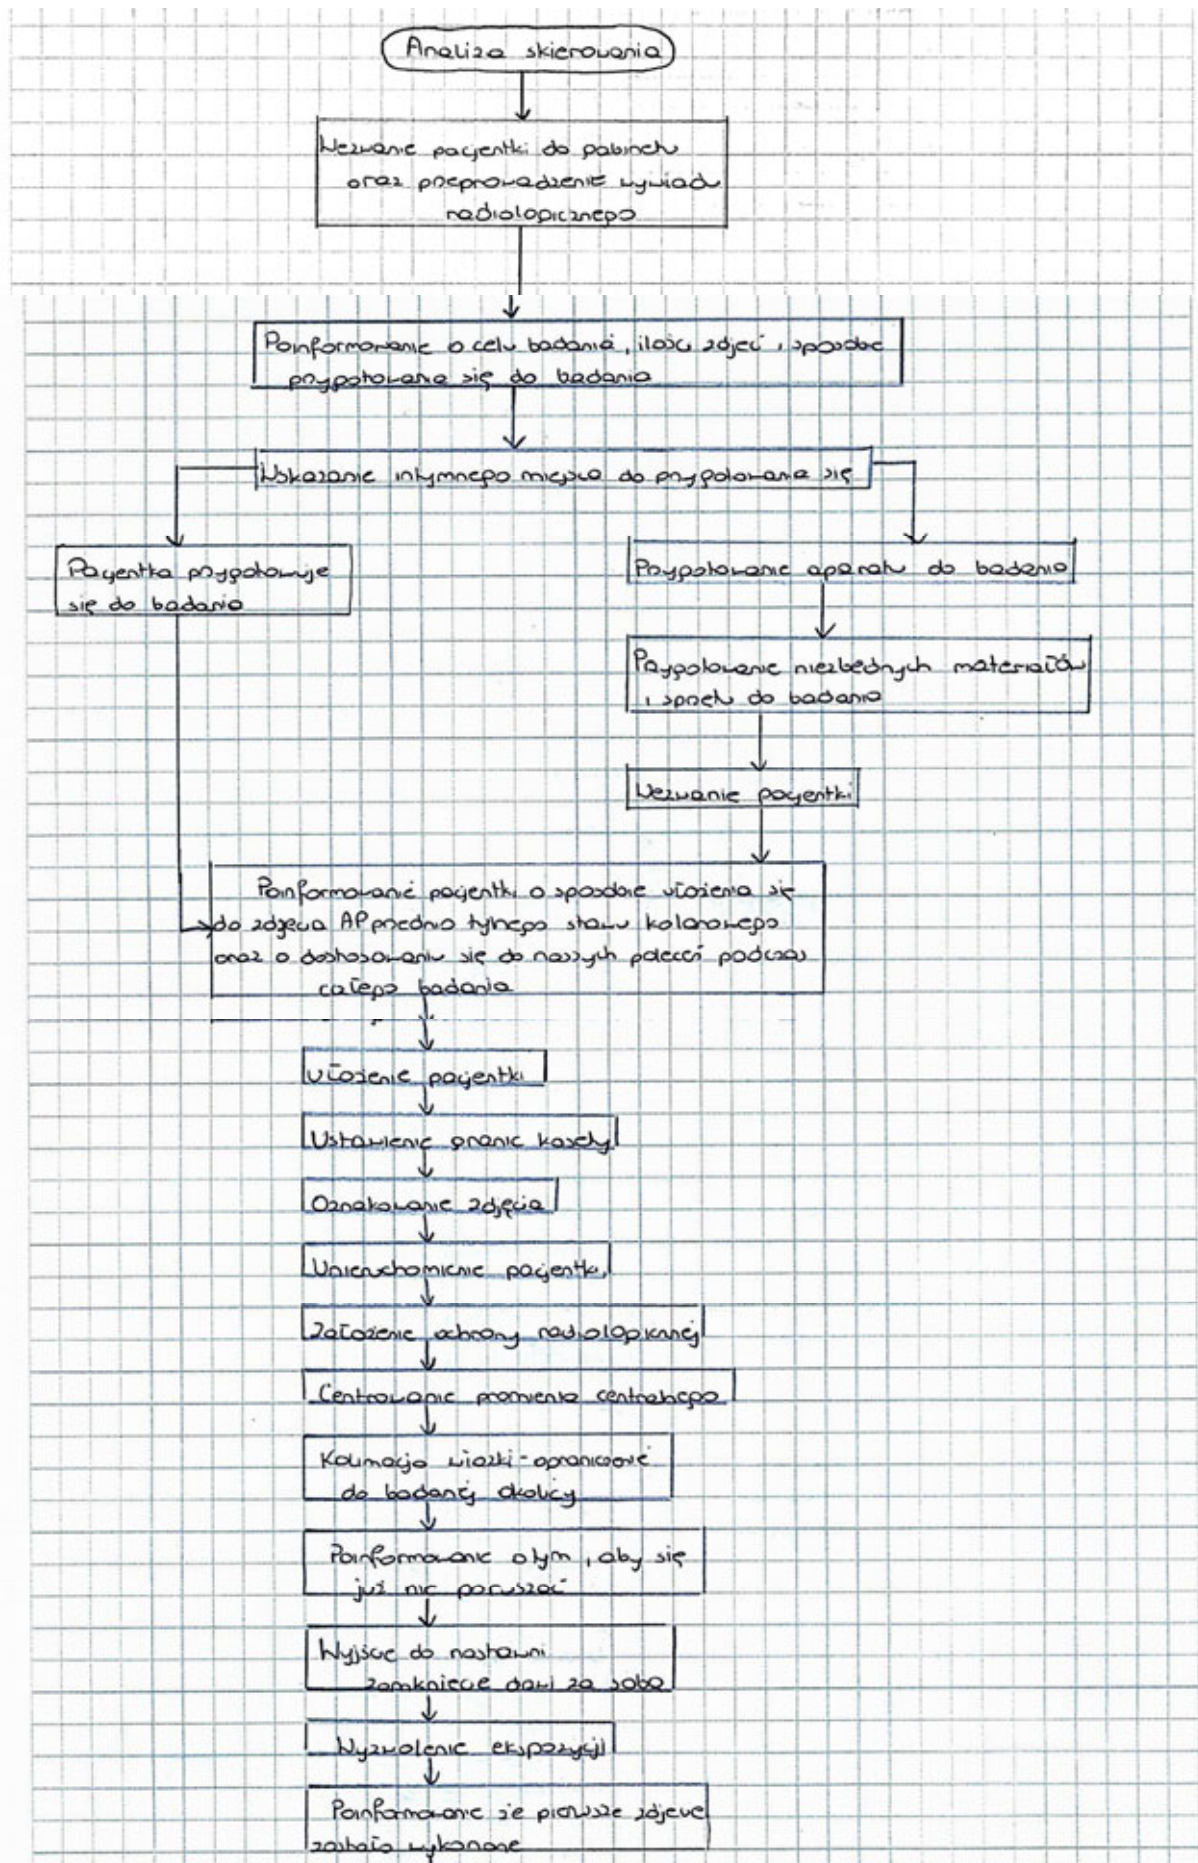 Analiza skierowania
Wezwanie pacjentki do gabinetu
oraz przeprowadzenie wywiadu
radiologicznego
Poinformowanie o celu badania, ilości zdjęć i sposobie
przygotowania się do badania
Wskazanie intymnego miejsca do przygotowania się
Pacjentka przygotowuje
się do badania
Przygotowanie aparatu do badania
Przygotowanie niezbędnych materiałów
i sprzętu do badania
Wezwanie pacjentki
Poinformowanie pacjentki o sposobie ułożenia się
do zdjęcia AP przednio tylnego stawu kolanowego
oraz o dostosowaniu się do naszych poleceń podczas
całego badania
Ułożenie pacjentki
Ustawienie granic kasety
Oznakowanie zdjęcia
Unieruchomienie pacjentki
Założenie ochrony radiologicznej
Centrowanie promienia centralnego
Kolimacja wiązki - ograniczenie
do badanej okolicy
Poinformowanie o tym, aby się
już nie poruszać
Wyjście do nastawni
zamknięcie drzwi za sobą
Wyzwolenie ekspozycji
Poinformowanie że pierwsze zdjęcie
zostało wykonane